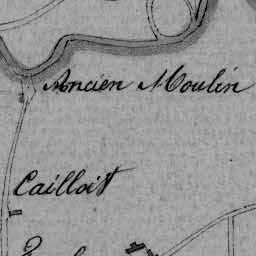 Ancien Moulin
Cailloit